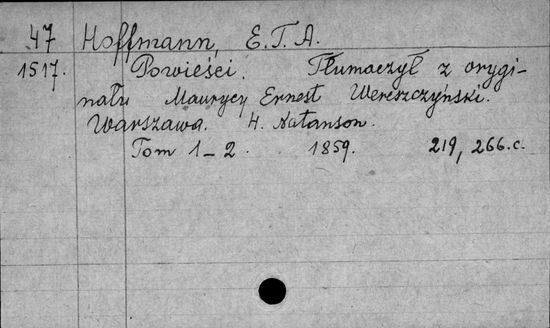 47 Hoffmann, E.T.A.
1517. Powieści. Tłumaczył z orygi-
nału Maurycy Ernest Wereszczyński.
Warszawa. H. Natanson.
Tom 1-2. 1859. 219, 266.c.